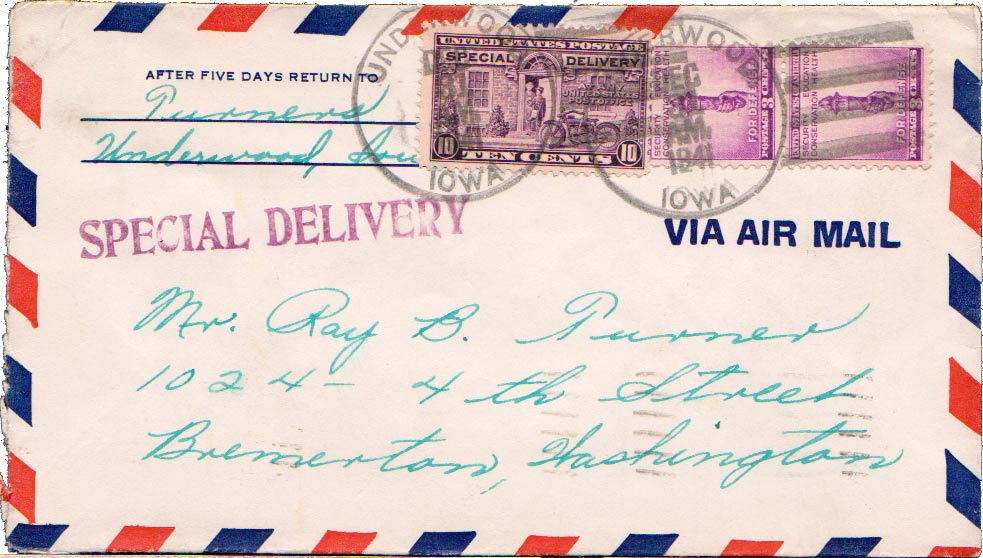 AFTER FIVE DAYS RETURN TO
Turners
Underwood, Iow
UNDERWOOD
IOWA
UNITED STATES POSTAGE
SPECIAL DELIVERY
AT ANY
UNITED STATES
POST OFFICE
10 TEN CENTS 10
DERWOOD
DEC
PM
1941
IOWA
SECURITY EDUCATION
CONSERVATION HEALTH
FOR DEFENSE
POSTAGE 3 CENTS
UNITED STATES OF AMERICA
SECURITY EDUCATION
CONSERVATION HEALTH
FOR DEFENSE
POSTAGE 3 CENTS
SPECIAL DELIVERY
VIA AIR MAIL
Mr. Ray B. Turner
1024 - 4th Street
Bremerton, Washington